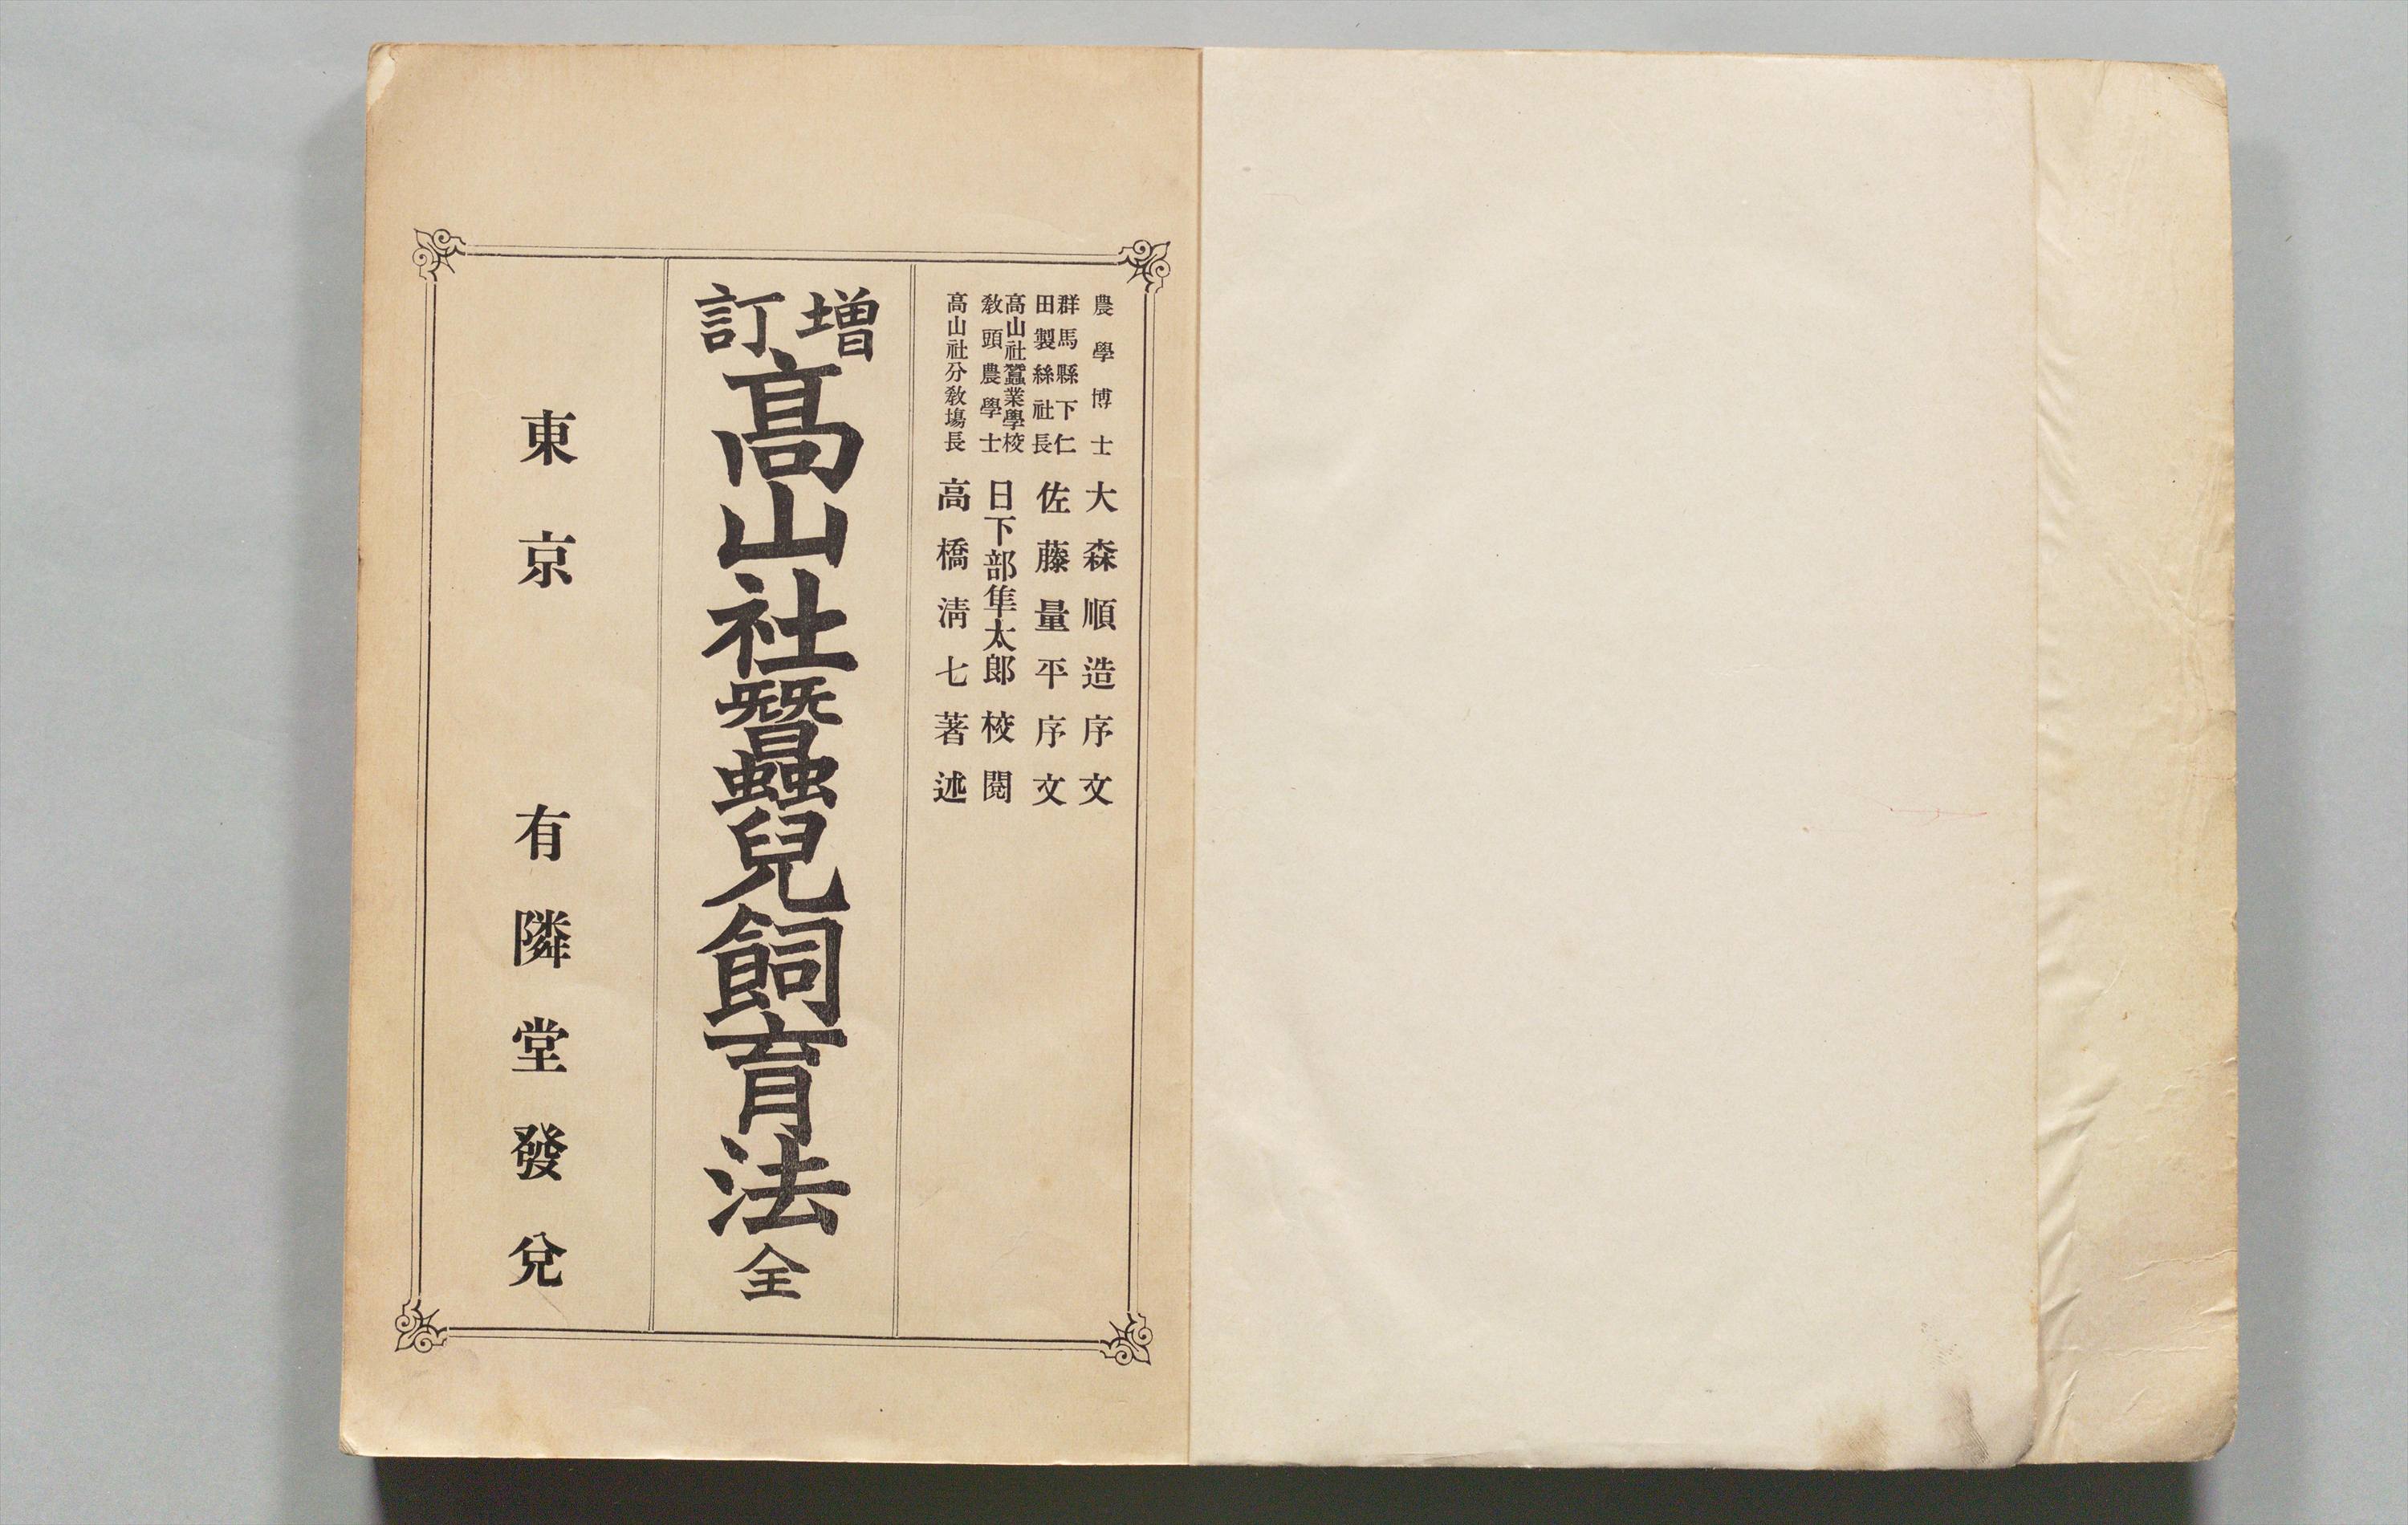 農學博士 大森順造序文
群馬縣下仁田製絲社長 佐藤量平序文
高山社蠶業學校教頭農學士 日下部隼太郎校閲
高山社分教塲長 高橋淸七著述
增訂 高山社蠶兒飼育法 全
東京 有隣堂發兌